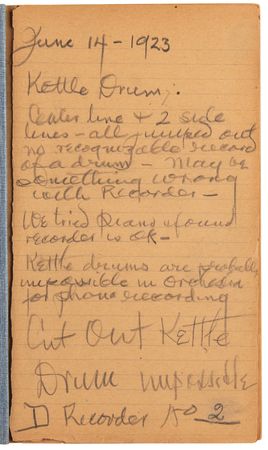 June 14 - 1923
Kettle Drum;
Center line & 2 side
lines - all jumped out
no recognizable record
of a drum - May be
something wrong
with Recorder -
We tried piano & found
recorder is ok -
Kettle drums are probably
impossible in Orchestra
for phono recording
Cut Out Kettle
Drum impossible
Recorder No 2